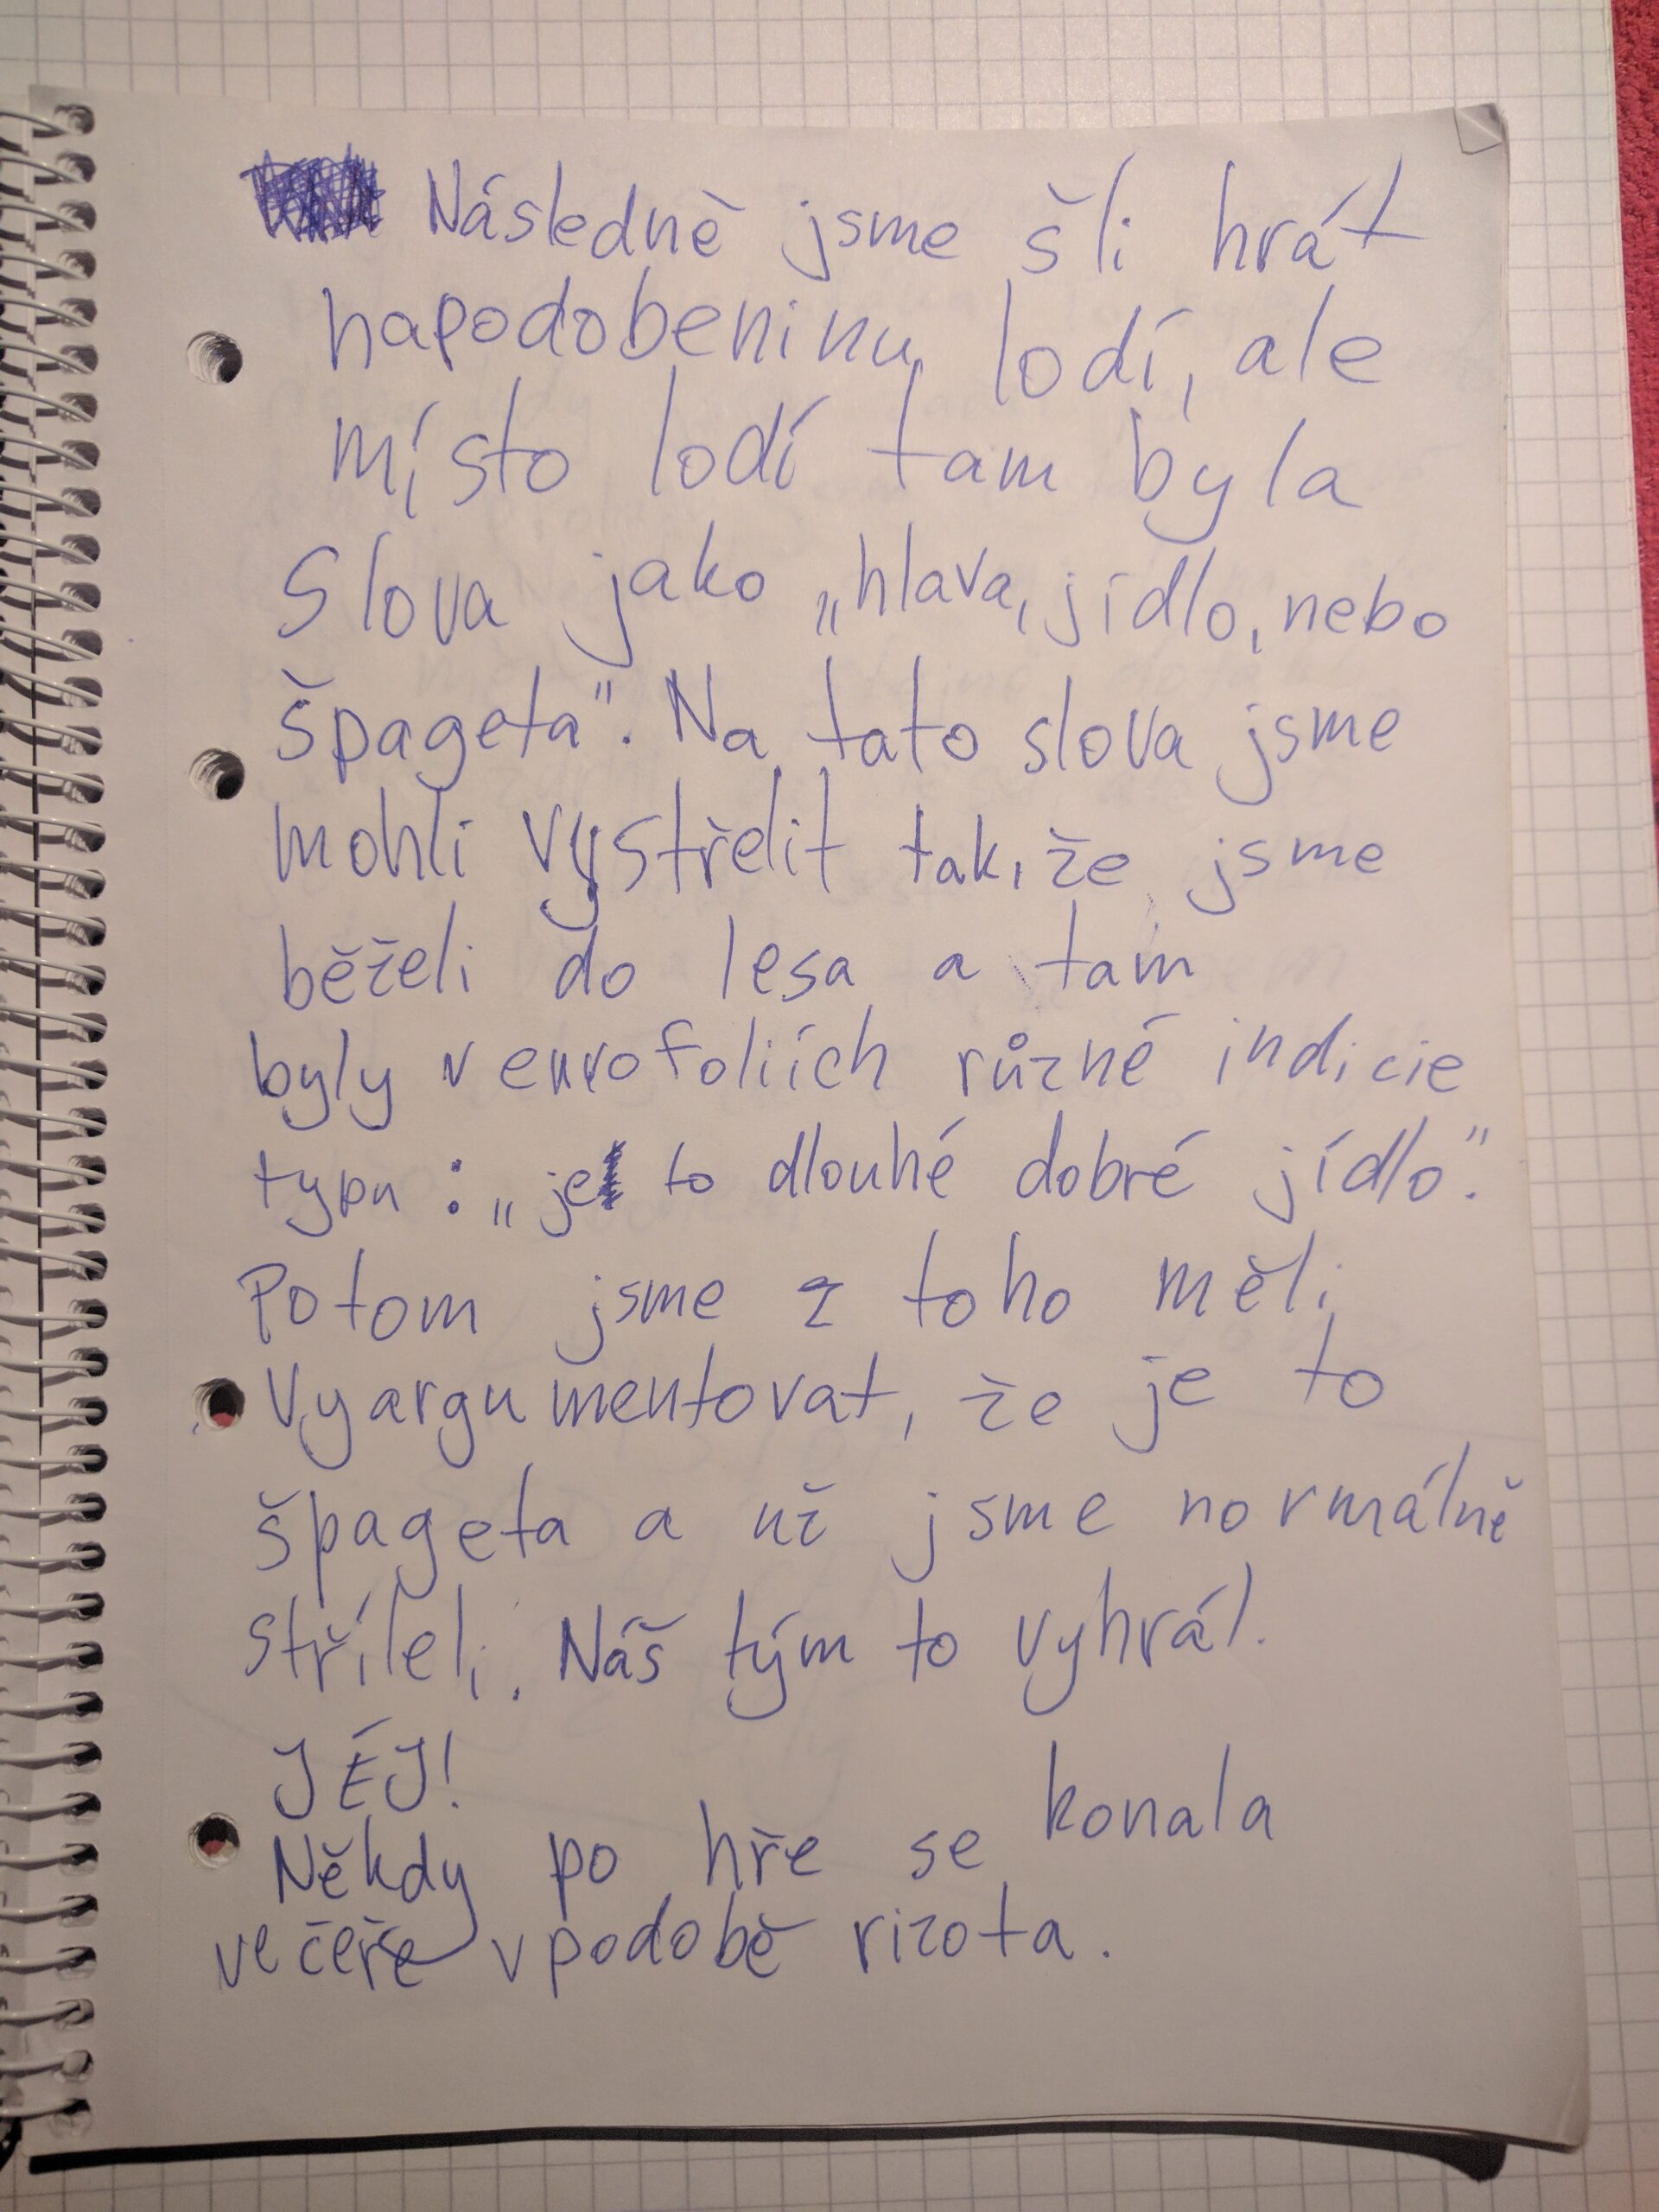 Následně jsme šli hrát
napodobeninu lodí, ale
místo lodí tam byla
slova jako „hlava, jídlo, nebo
špageta". Na tato slova jsme
mohli vystřelit tak, že jsme
běželi do lesa a tam
byly v eurofoliích různé indicie
typu : „je to dlouhé dobré jídlo".
Potom jsme z toho měli
vyargumentovat, že je to
špageta a už jsme normálně
stříleli. Náš tým to vyhrál.
JÉJ!
Někdy po hře se konala
večeře v podobě rizota.